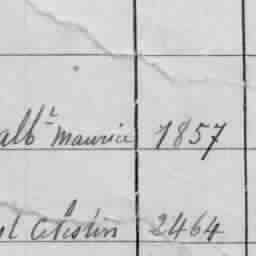 albᵗ Maurice 1857
st Célestin 2464